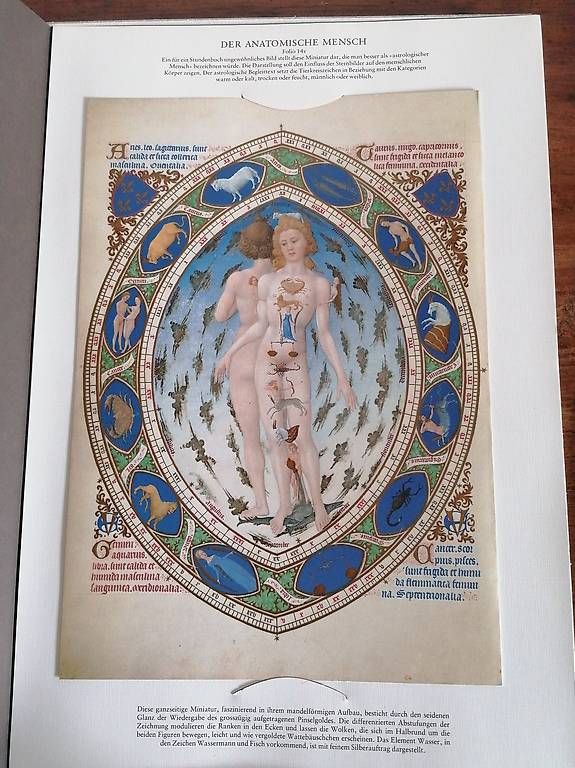 DER ANATOMISCHE MENSCH
Folio 14v
Ein für ein Stundenbuch ungewöhnliches Bild stellt diese Miniatur dar, die man besser als «astrologischer
Mensch» bezeichnen würde. Die Darstellung soll den Einfluss der Sternbilder auf den menschlichen
Körper zeigen. Der astrologische Begleittext setzt die Tierkreiszeichen in Beziehung mit den Kategorien
warm oder kalt, trocken oder feucht, männlich oder weiblich.
Aries. leo. sagittarius. sunt
calida et sicca collerica
masculina. Orientalia.
Taurus. virgo. capricornus.
sunt frigida et sicca melanco
lica feminina. occidentalia.
Gemini.
aquarius.
libra. sunt calida et
humida masculina
sanguinea. meridionalia.
Cancer. scor
pius. pisces.
sunt frigida et humi
da flemmatica femini
na. Septentrionalia.
Diese ganzseitige Miniatur, faszinierend in ihrem mandelförmigen Aufbau, besticht durch den seidenen
Glanz der Wiedergabe des grosszügig aufgetragenen Pinselgoldes. Die differenzierten Abstufungen der
Zeichnung modulieren die Ranken in den Ecken und lassen die Wolken, die sich im Halbrund um die
beiden Figuren bewegen, leicht und wie vergoldete Wattebäuschchen erscheinen. Das Element Wasser, in
den Zeichen Wassermann und Fisch vorkommend, ist mit feinem Silberauftrag dargestellt.